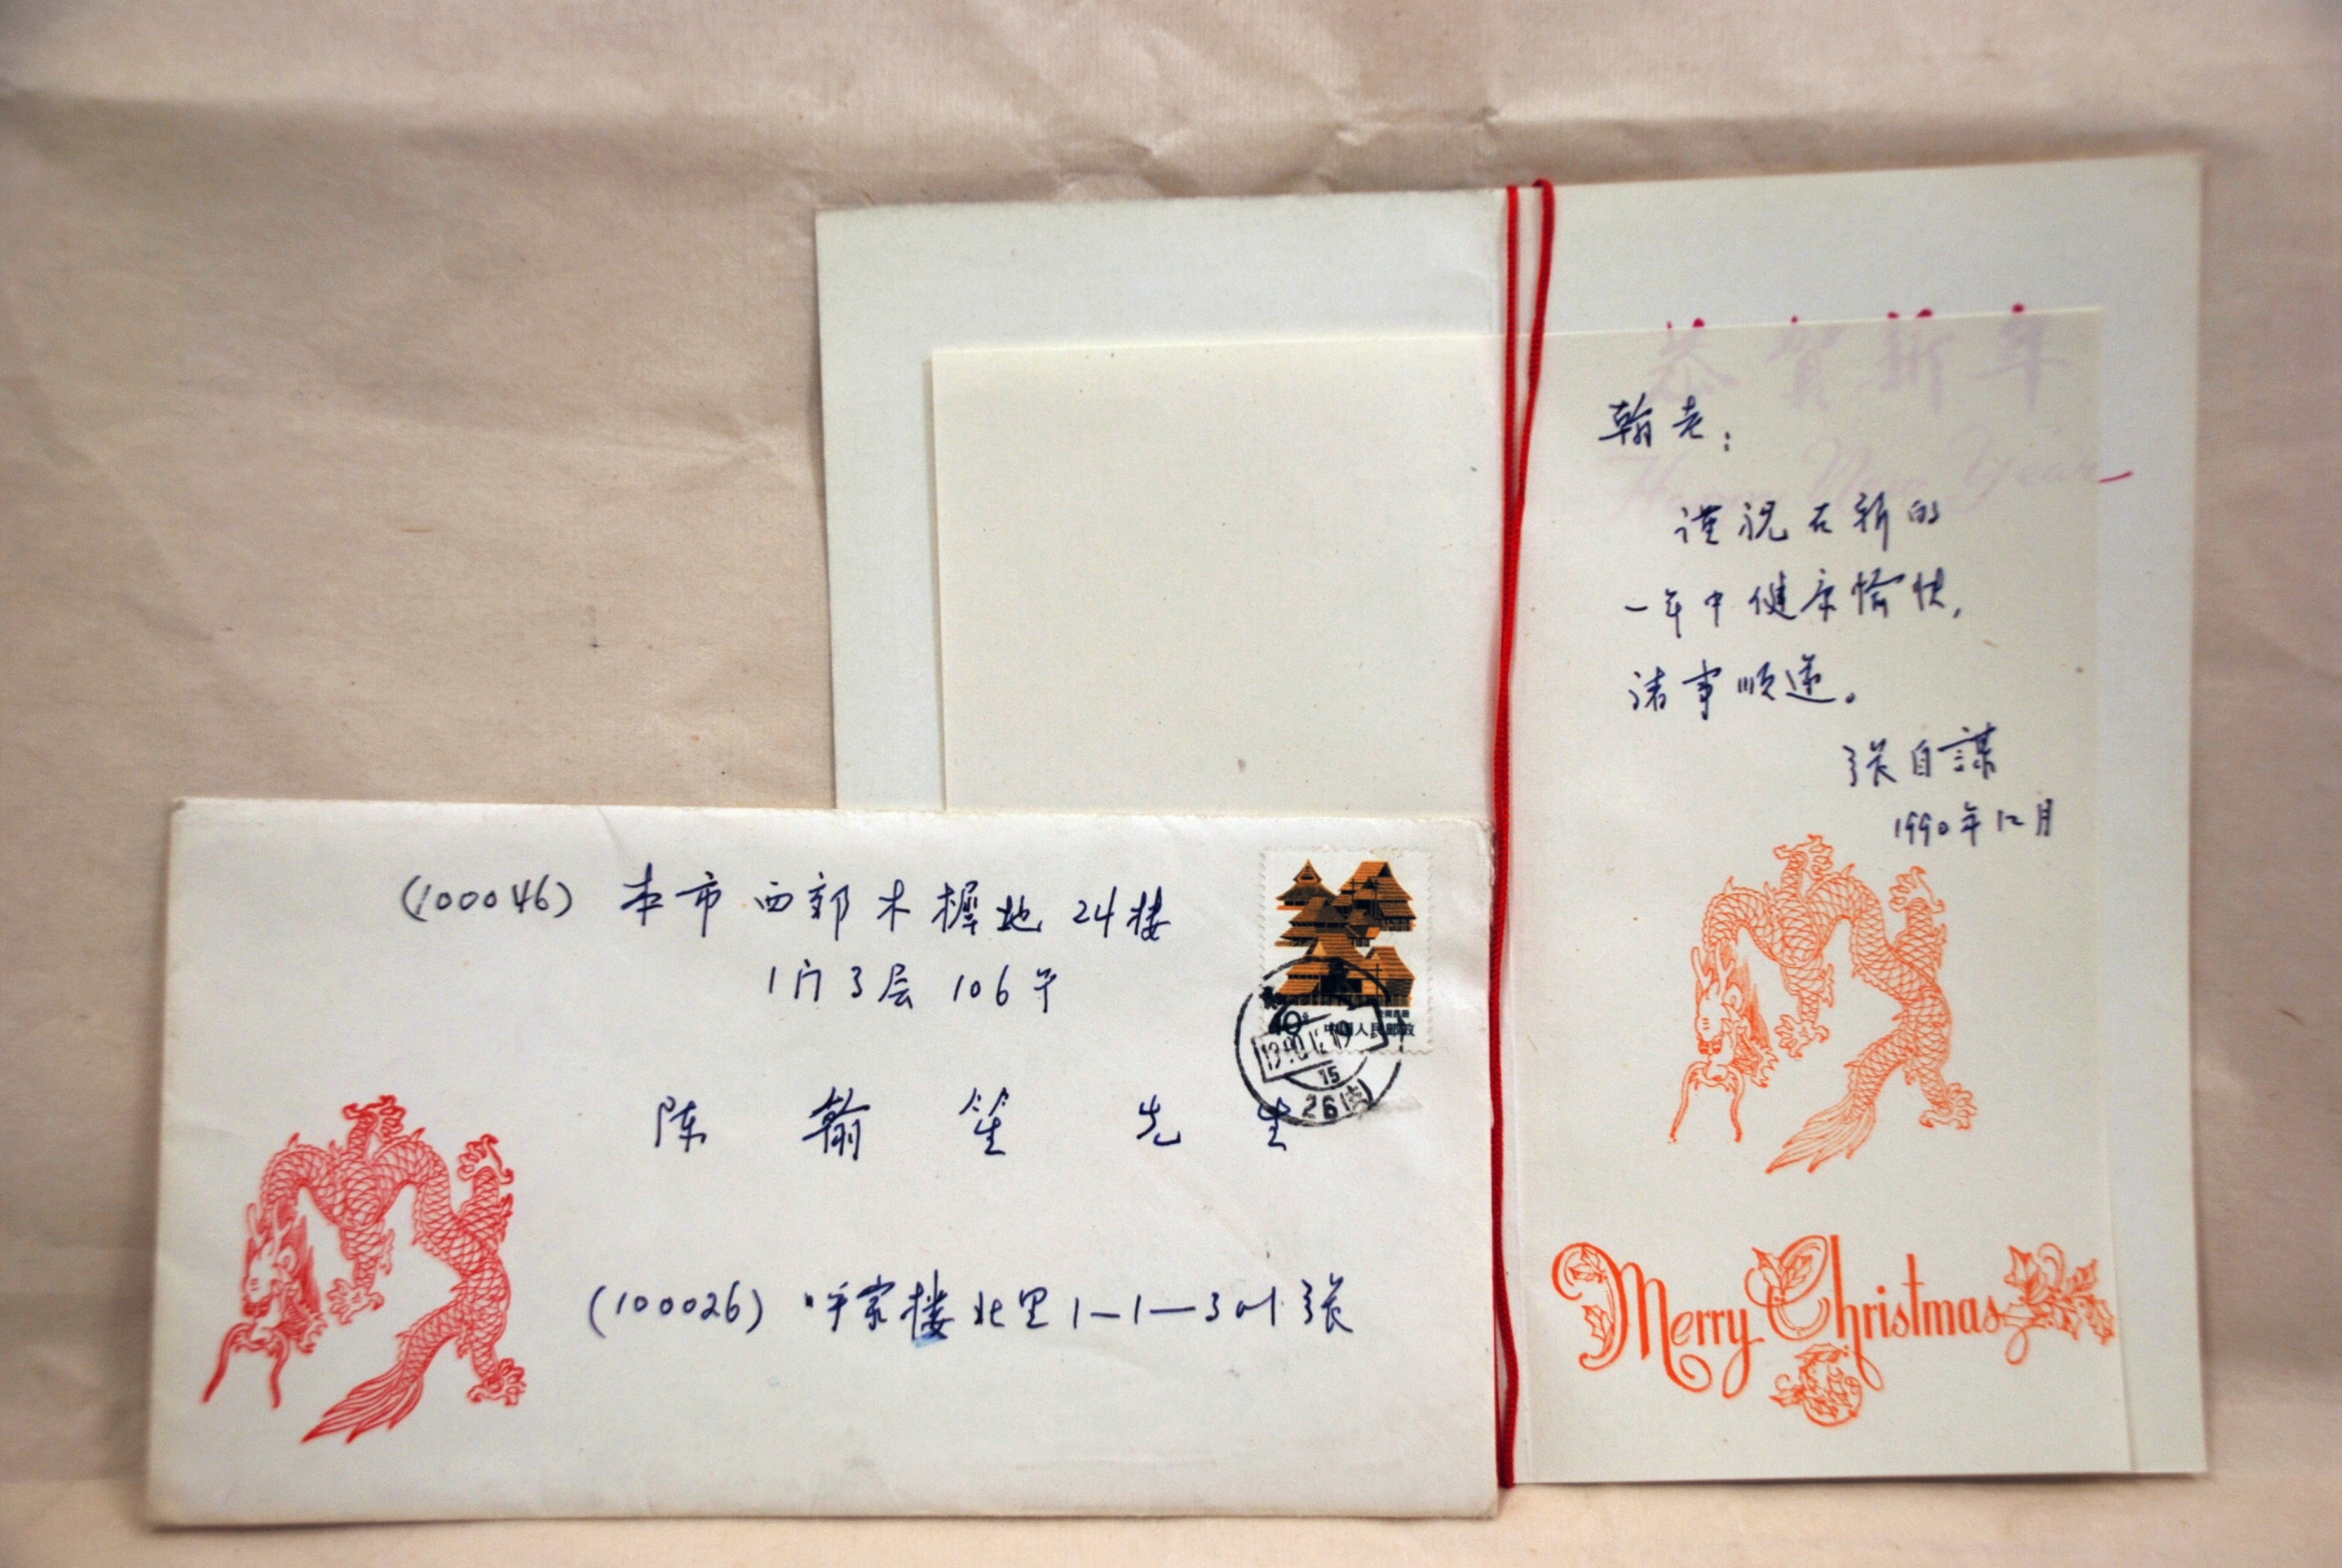 (100046) 本市西郊木樨地24楼
1门3层 106号
陈 翰 笙 先 生
(100026) 呼家楼北里1-1-301 张
10分 中国人民邮政
15
26
恭贺新年
Happy New Year
翰老:
谨祝在新的
一年中健康愉快,
诸事顺遂。
张自謀
1990年12月
Merry Christmas